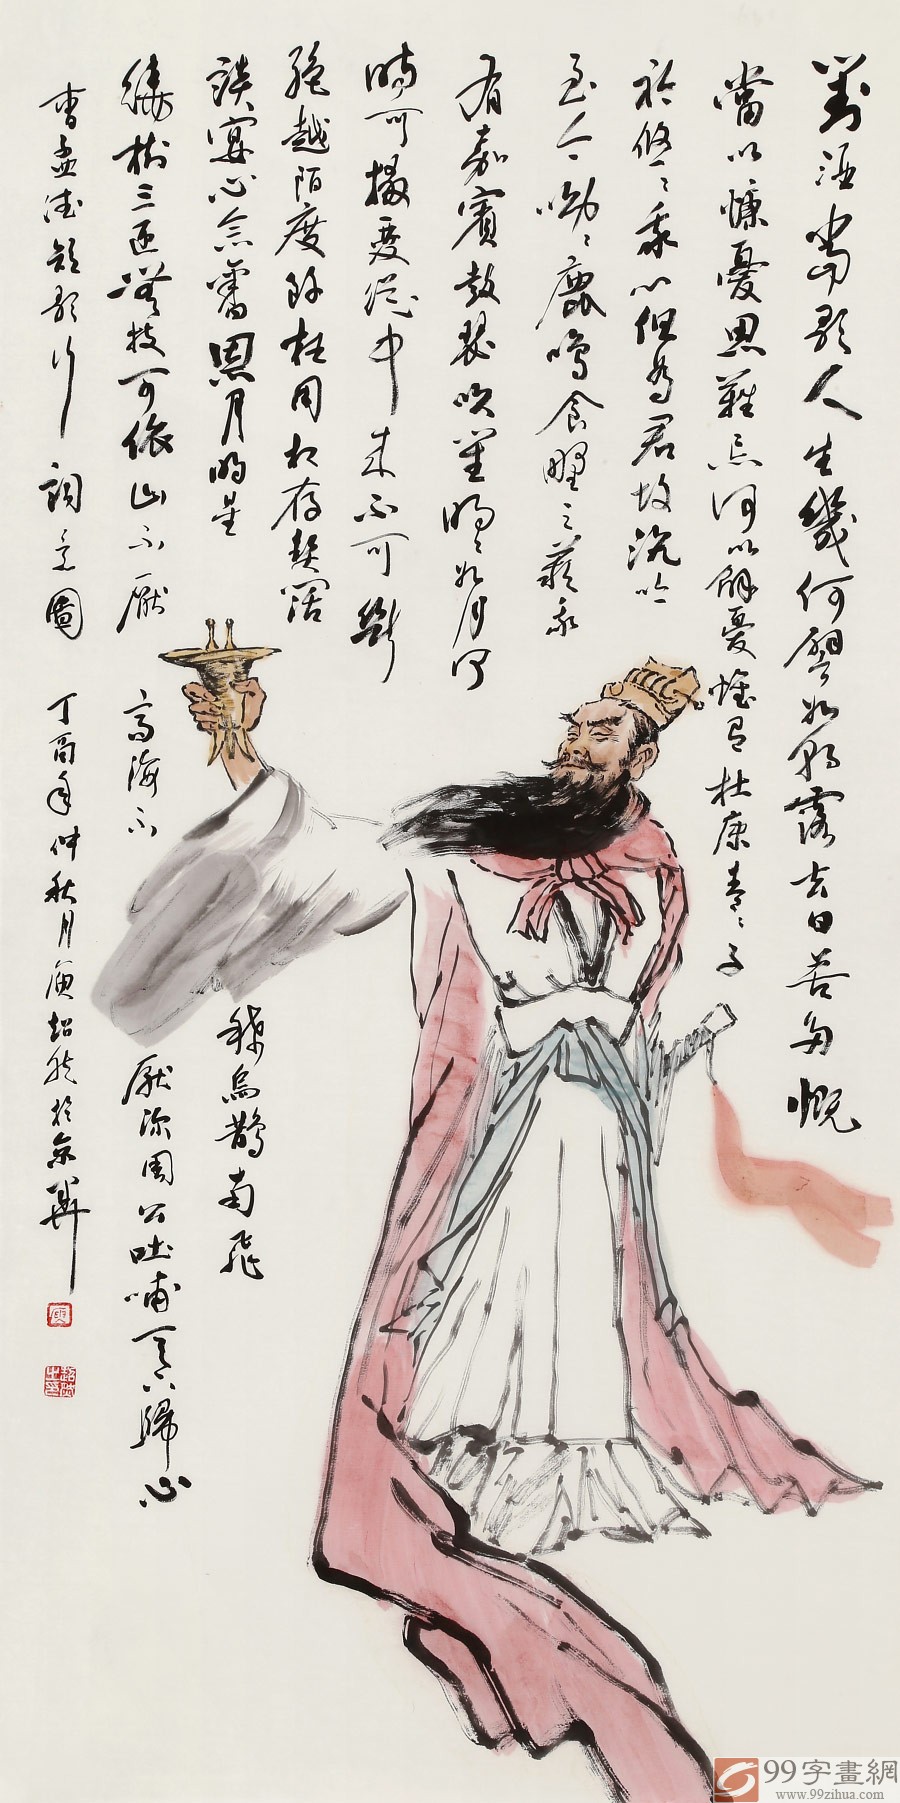 對酒當歌人生幾何譬如朝露去日苦多慨
當以慷憂思難忘何以解憂惟有杜康青〻子
衿悠〻我心但為君故沉吟
至今呦〻鹿鳴食野之蘋我
有嘉賓鼓瑟吹笙明〻如月何
時可掇憂從中來不可斷
絕越陌度阡枉用相存契闊
談宴心念舊恩月明星
稀烏鵲南飛
繞樹三匝何枝可依山不厭
高海不
厭深周公吐哺天下歸心
曹孟德短歌行詞意圖
丁酉年仲秋月超然於京華
99字畫網
www.99zihua.com